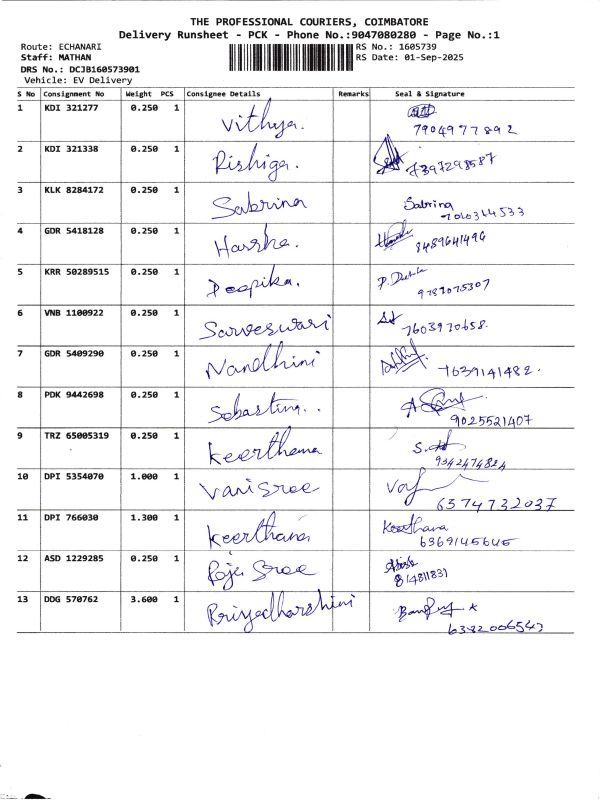 THE PROFESSIONAL COURIERS, COIMBATORE
Delivery Runsheet - PCK - Phone No.:9047080280 - Page No.:1
Route: ECHANARI RS No.: 1605739
Staff: MATHAN RS Date: 01-Sep-2025
DRS No.: DCJB160573901
Vehicle: EV Delivery
S No Consignment No Weight PCS Consignee Details Remarks Seal & Signature
1 KDI 321277 0.250 1 Vithya.
7904977892
2 KDI 321338 0.250 1 Rishiga. 7397298587
3 KLK 8284172 0.250 1 Sabrina Sabrina
7010364533
4 GDR 5418128 0.250 1 Harsha. 8489641496
5 KRR 50289515 0.250 1 Deepika.
6 VNB 1100922 0.250 1 Sarveswari 7603970658.
7 GDR 5409290 0.250 1 Nandhini 7639141482.
8 PDK 9442698 0.250 1
9025521407
9 TRZ 65005319 0.250 1 Keerthana
9342474824
10 DPI 5354070 1.000 1 Varisree
6374732037
11 DPI 766030 1.300 1 Keerthana Keerthana
6369145645
12 ASD 1229285 0.250 1 Roja Sree
814811831
13 DDG 570762 3.600 1 Priyadharshini
6382006543